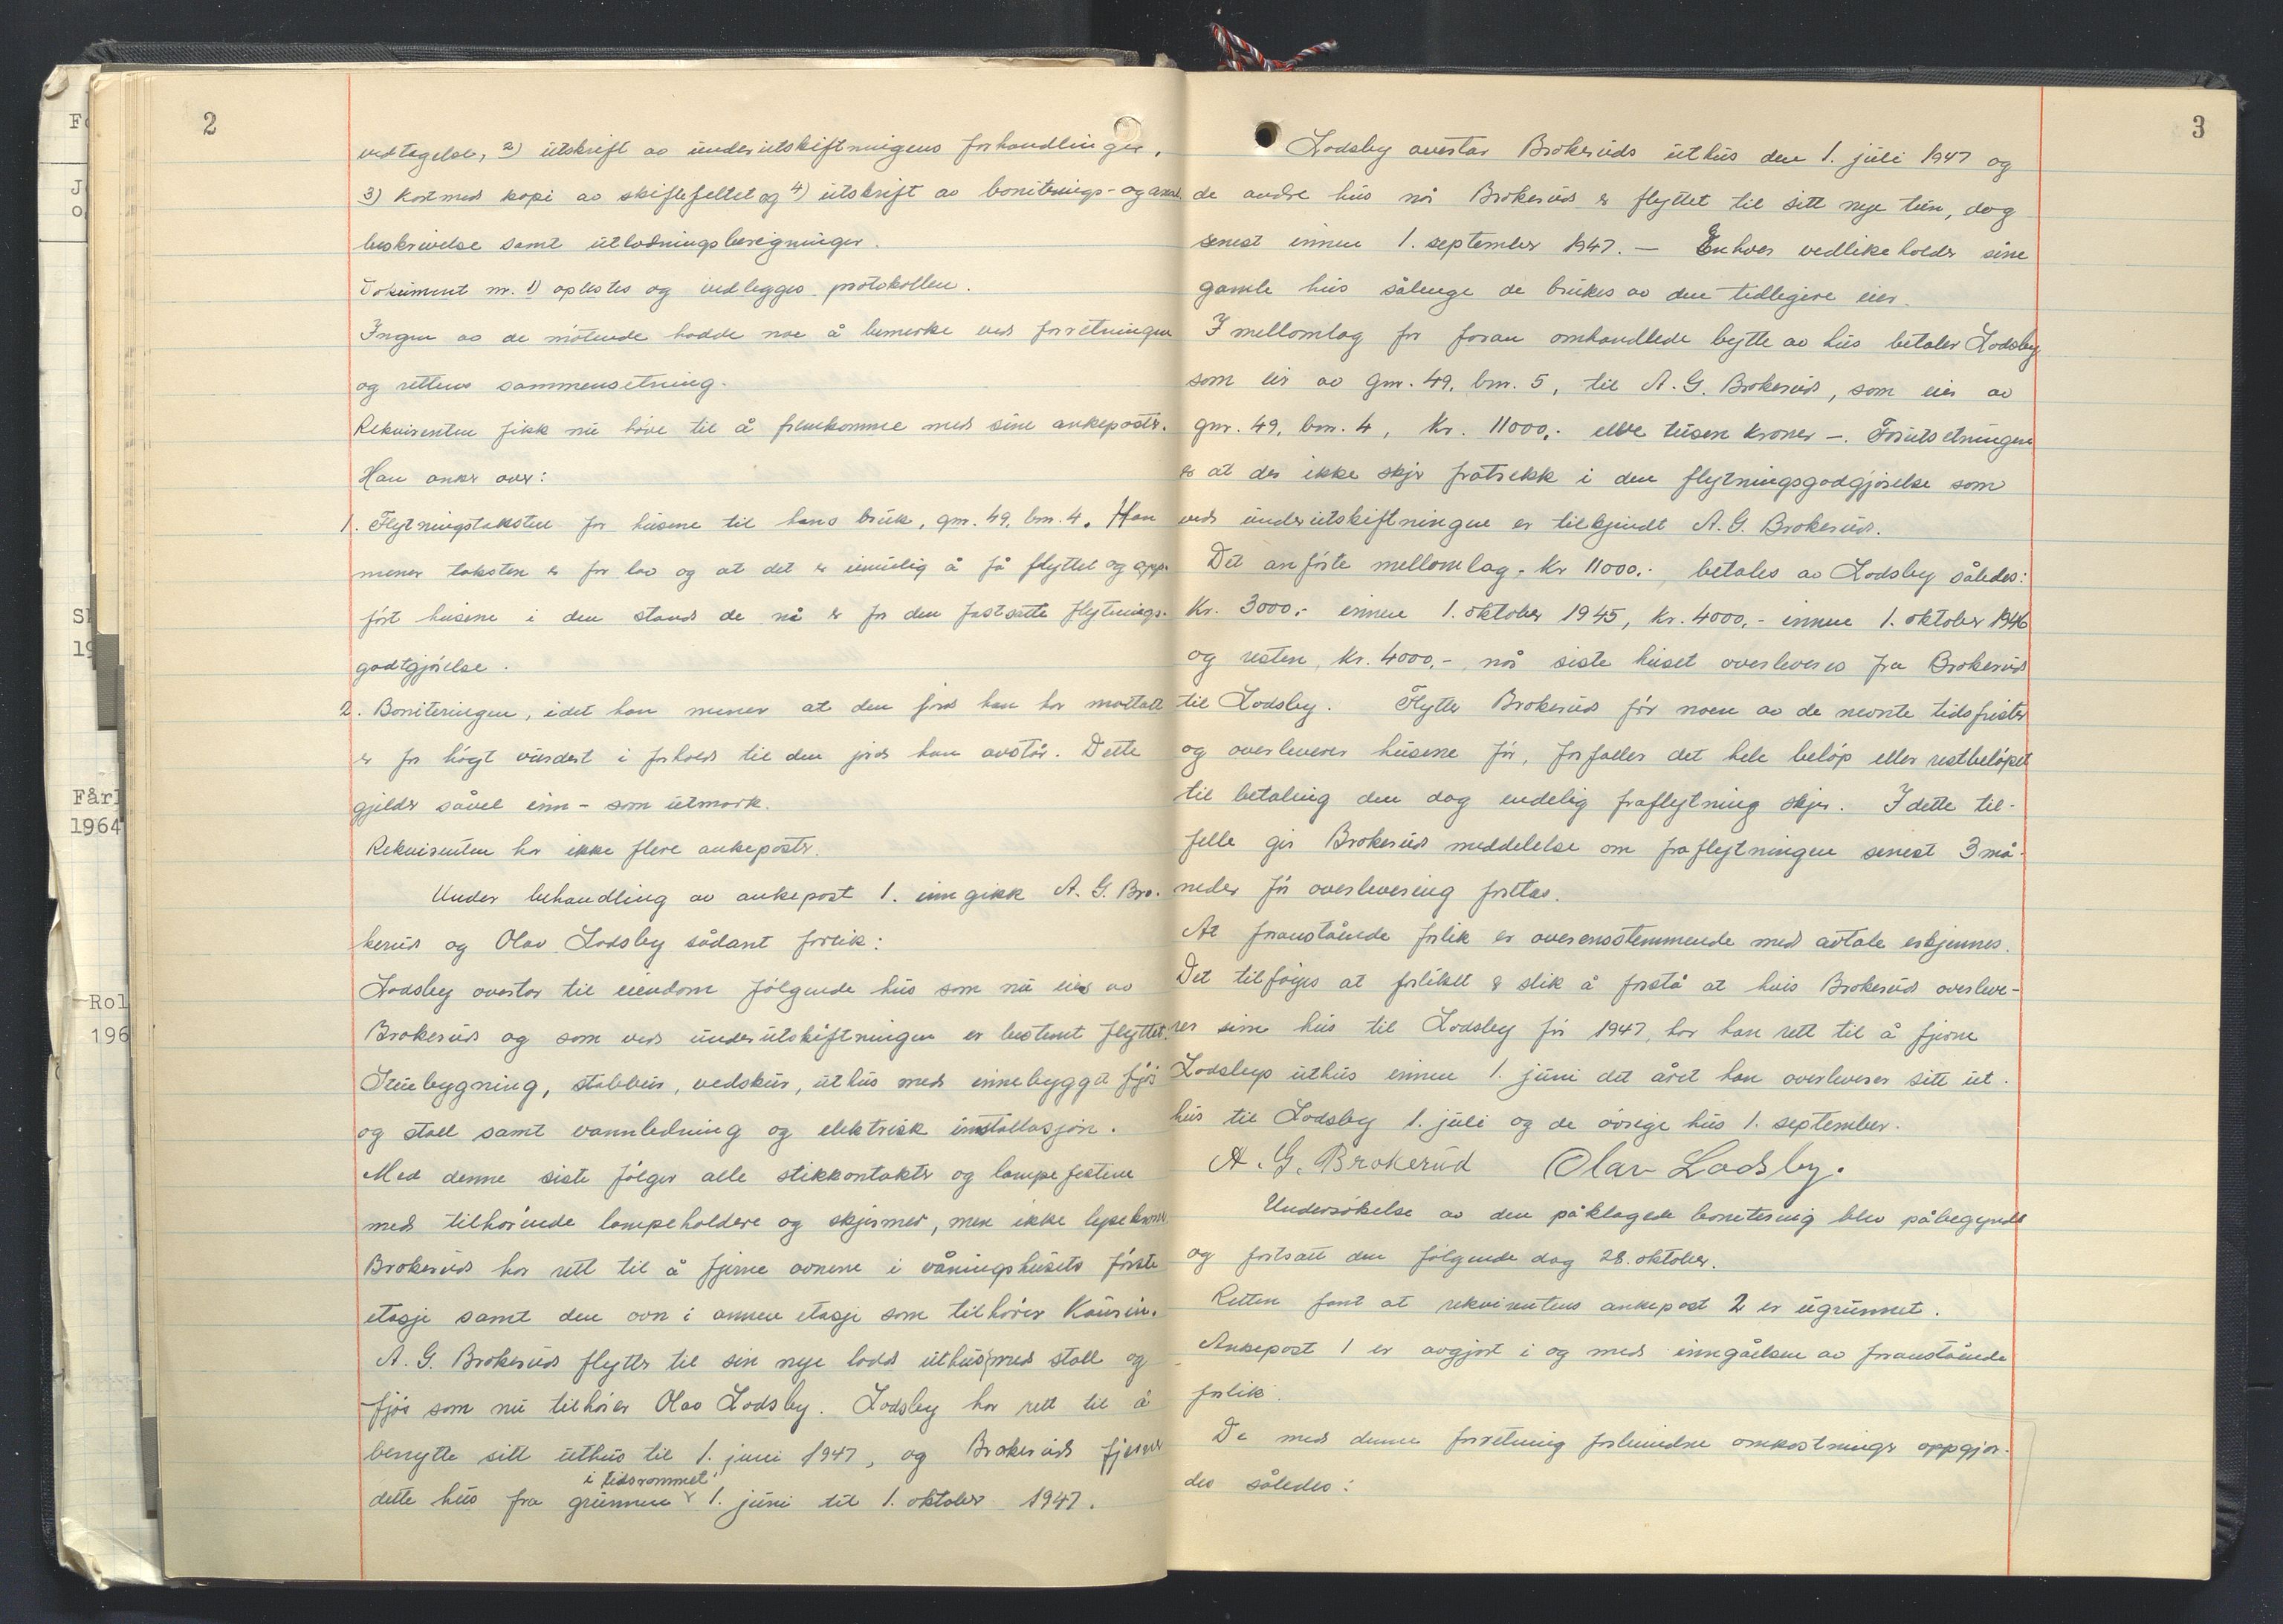 2
vedtagelse, 2) utskrift av underutskiftningens forhandlinger,
3) Kart med kopi av skiftefeltet og 4) utskrift av boniterings- og areal
beskrivelse samt utlodningsberegninger.
Dokument nr. 1) oplestes og vedlegges protokollen.
Ingen av de møtende hadde noe å bemerke ved forretningen
og rettens sammensetning.
Rekvirenten fikk nu høve til å fremkomme med sine ankeposter.
Han anker over:
1. Flytningstaksten for husene til hans bruk, gnr. 49, bnr. 4. Han
mener taksten er for lav og at det er umulig å få flyttet og opp-
ført husene i den stand de nå er for den fastsatte flytnings-
godtgjørelse.
2. Boniteringen, idet han mener at den jord han har mottatt
er for høgt vurdert i forhold til den jord han avstår. Dette
gjelder såvel inn- som utmark.
Rekvirenten har ikke flere ankeposter.
Under behandling av ankepost 1. inngikk A. G. Bro-
kerud og Olav Lodsby sådant forlik:
Lodsby overtar til eiendom følgende hus som nu eies av
Brokerud og som ved underutskiftningen er bestemt flyttet:
Stuebygning, stabbur, vedskur, uthus med innebygget fjøs
og stall samt vannledning og elektrisk installasjon.
Med denne siste følger alle stikkontakter og lampefestene
med tilhørende lampeholdere og skjermer, men ikke lysekroner
Brokerud har rett til å fjerne ovnene i våningshusets første
etasje samt den ovn i annen etasje som tilhører Kaurin.
A. G. Brokerud flytter til sin nye lodd uthus med stall og
fjøs som nu tilhører Olav Lodsby. Lodsby har rett til å
benytte sitt uthus til 1. juni 1947, og Brokerud fjerner
i tidsrommet
dette hus fra grunnen 1. juni til 1. oktober 1947.
3
Lodsby overtar Brokeruds uthus den 1. juli 1947 og
de andre hus når Brokerud er flyttet til sitt nye tun, dog
senest innen 1. september 1947. — Enhver vedlikeholder sine
gamle hus sålenge de brukes av den tidligere eier.
I mellomlag for foran omhandlede bytte av hus betaler Lodsby
som eier av gnr. 49, bnr. 5, til A. G. Brokerud, som eier av
gnr. 49, bnr. 4, kr. 11000,- elve tusen kroner —. Forutsetningen
er at der ikke skjer fratrekk i den flytningsgodgjørelse som
ved underutskiftningen er tilkjendt A. G. Brokerud.
Det anførte mellomlag, kr 11000,- betales av Lodsby således:
Kr. 3000,- innen 1. oktober 1945, kr. 4000,- innen 1. oktober 1946
og resten, kr. 4000,-, når siste huset overleveres fra Brokerud
til Lodsby. Flytter Brokerud før noen av de nevnte tidsfrister
og overleverer husene før, forfaller det hele beløp eller restbeløpet
til betaling den dag endelig fraflytning skjer. I dette til-
felle gir Brokerud meddelelse om fraflytningen senest 3 må-
neder før overlevering foretas.
At foranstående forlik er overensstemmende med avtale erkjennes.
Det tilføyes at forliket er slik å forstå at hvis Brokerud overleve-
rer sine hus til Lodsby før 1947, har han rett til å fjerne
Lodsbys uthus innen 1. juni det året han overleverer sitt ut-
hus til Lodsby 1. juli og de øvrige hus 1. september.
A. G. Brokerud Olav Lodsby.
Undersøkelse av den påklagede bonitering blev påbegyndt
og fortsatt den følgende dag 28. oktober.
Retten fant at rekvirentens ankepost 2 er ugrunnet.
Ankepost 1 er avgjort i og med inngåelsen av foranstående
forlik.
De med denne forretning forbundne omkostninger oppgjør-
des således:
Fårl
1964
Rol
196